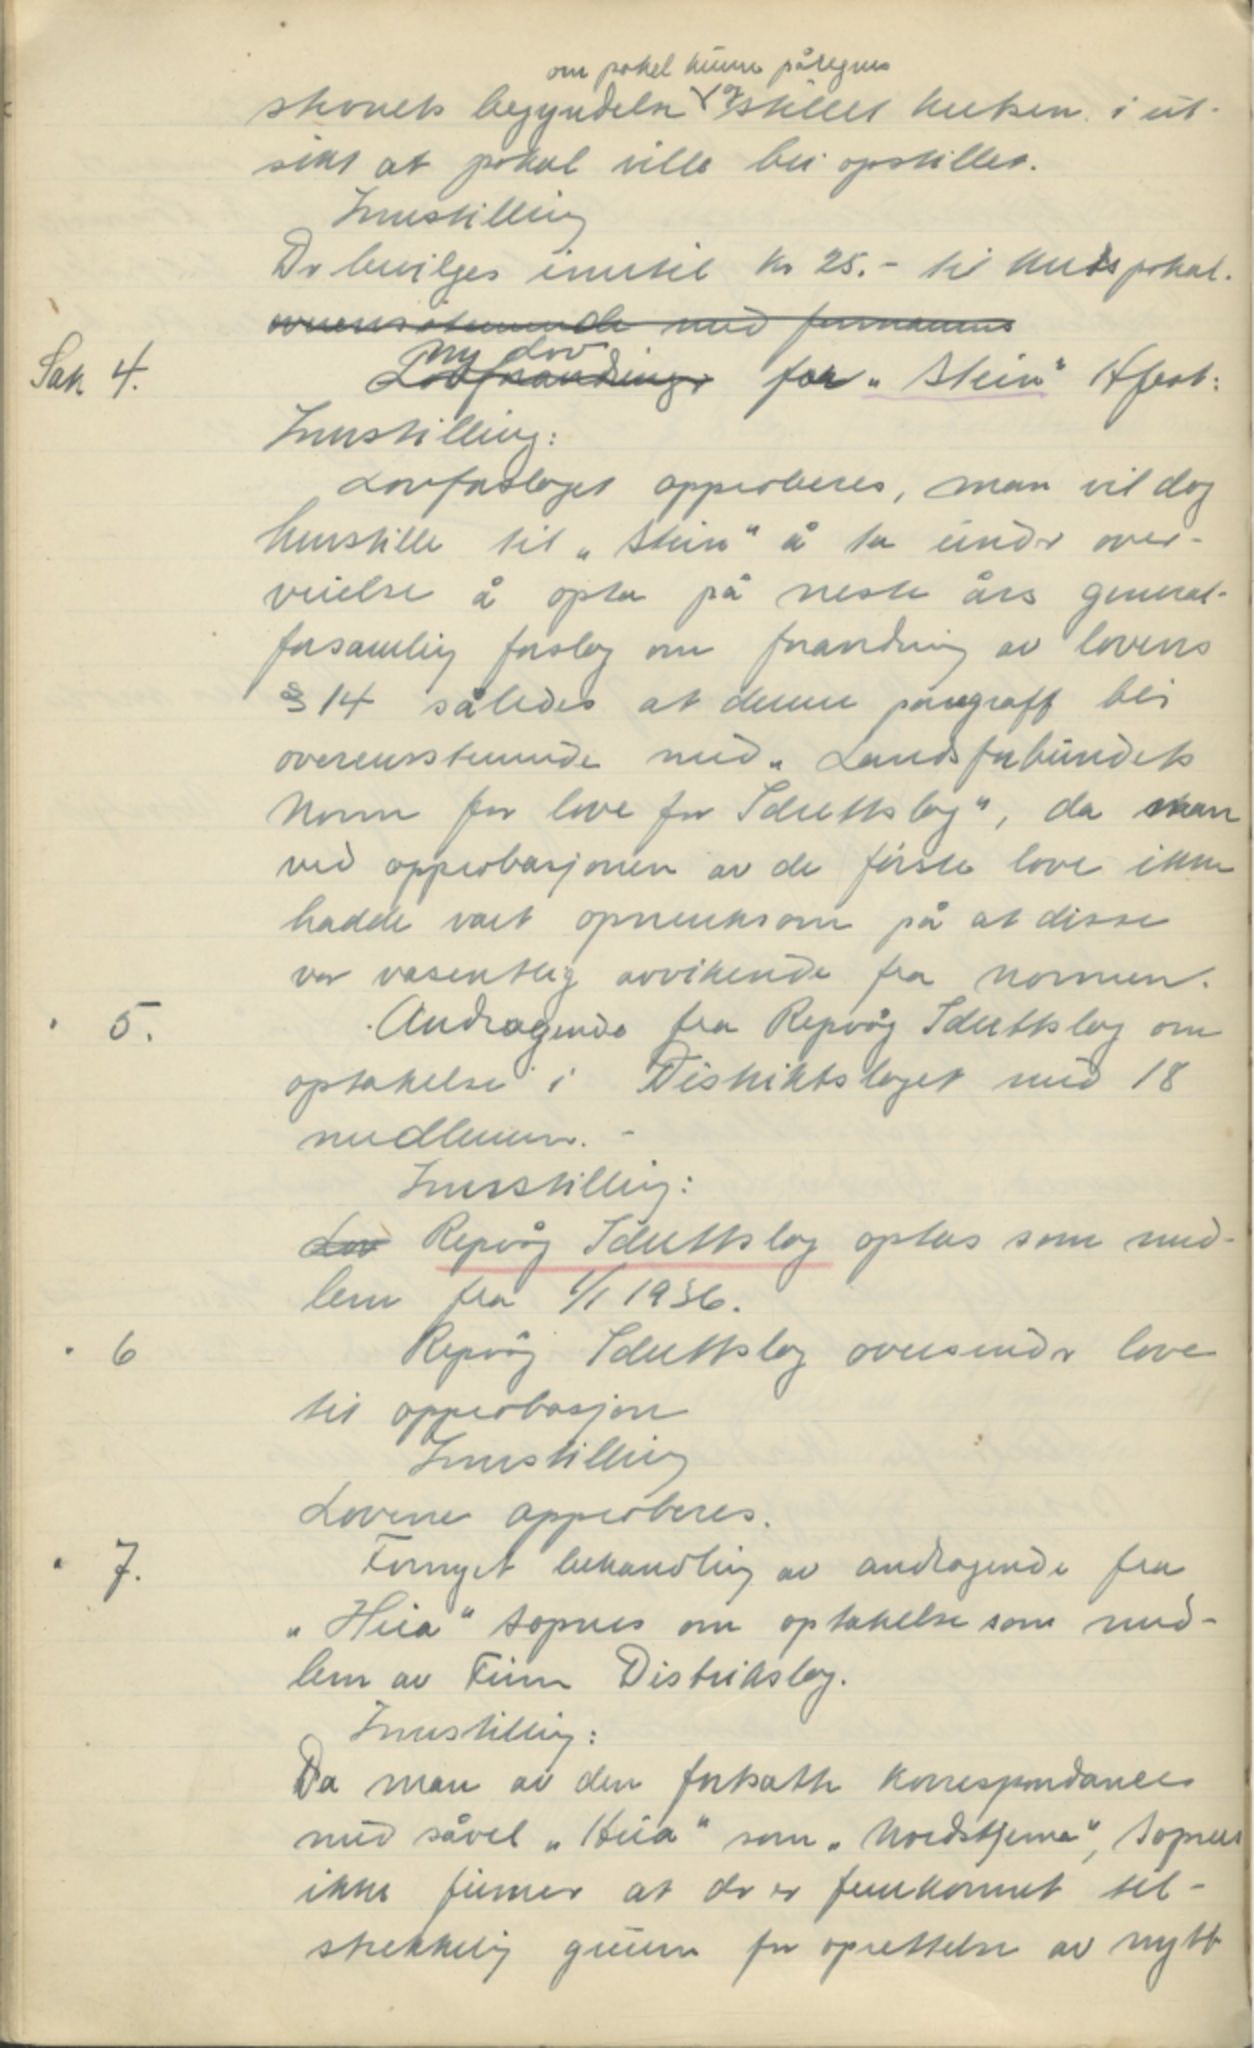 om pokal kunne påregnes
skovets begyndelse og stillet kretsen i ut-
sikt at pokal ville bli opstillet.
Innstilling
Dr bevilges inntil kr 25.- til kretspokal.
overensstemmende med formannens
Sak 4. Ny Lov
Lovforandringer for „Stein" Hfest:
Innstilling:
Lovforslaget approberes, man vil dog
henstille til „Stein" å ta undr over-
veielse å opta på neste års general-
forsamlig forslag om forandring av lovens
§ 14 således at denne paragraff bli
overensstemmende med „Landsforbundets
Norm for love for Idrettslag", da man
ved approbasjonen av de første love ikke
hadde vært opmerksom på at disse
var vesentlig avvikende fra normen.
" 5. Andragende fra Repvåg Idrettslag om
optakelse i Distriktslaget med 18
medlemmer. -
Innstilling:
Lov Repvåg Idrettslag optas som med-
lem fra 1/1 1936.
" 6 Repvåg Idrettslag oversendr love
til approbasjon
Innstilling
Lovene approberes.
" 7. Fornyet behandling av andragende fra
„Heia" Sopnes om optakelse som med-
lem av Finn Distrikslag.
Innstilling:
Da man av den fortsatte korrespondance
med såvel „Heia" som „Nordstjerna", Sopnes
ikke finner at dr er fremkommet til-
strekkelig grunn for oprettelse av nytt